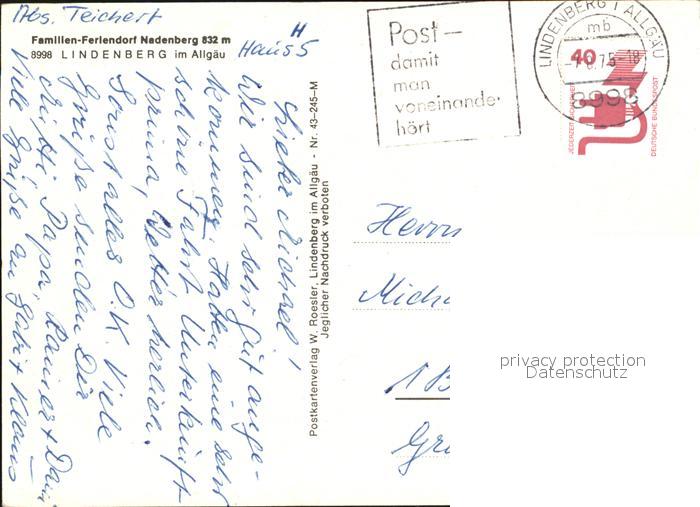 Abs. Teichert
Familien-Feriendorf Nadenberg 832 m
8998 LINDENBERG im Allgäu
H
Haus 5
Post –
damit
man
voneinander
hört
LINDENBERG I ALLGÄU
mb
8998
40
JEDERZEIT SICHERHEIT
DEUTSCHE BUNDESPOST
Lieber Michael!
Wir sind sehr gut ange-
kommen. Hatten eine sehr
schöne Fahrt. Unterkunft
prima, Wetter herrlich.
Sonst alles O.K. Viele
Grüße senden Dir
Papa, Rainer +
Viele Grüße an Gabi + Klaus
Postkartenverlag W. Roesler, Lindenberg im Allgäu - Nr. 43-245-M
Jeglicher Nachdruck verboten
Herrn
Mich
1 B
Gr
privacy protection
Datenschutz